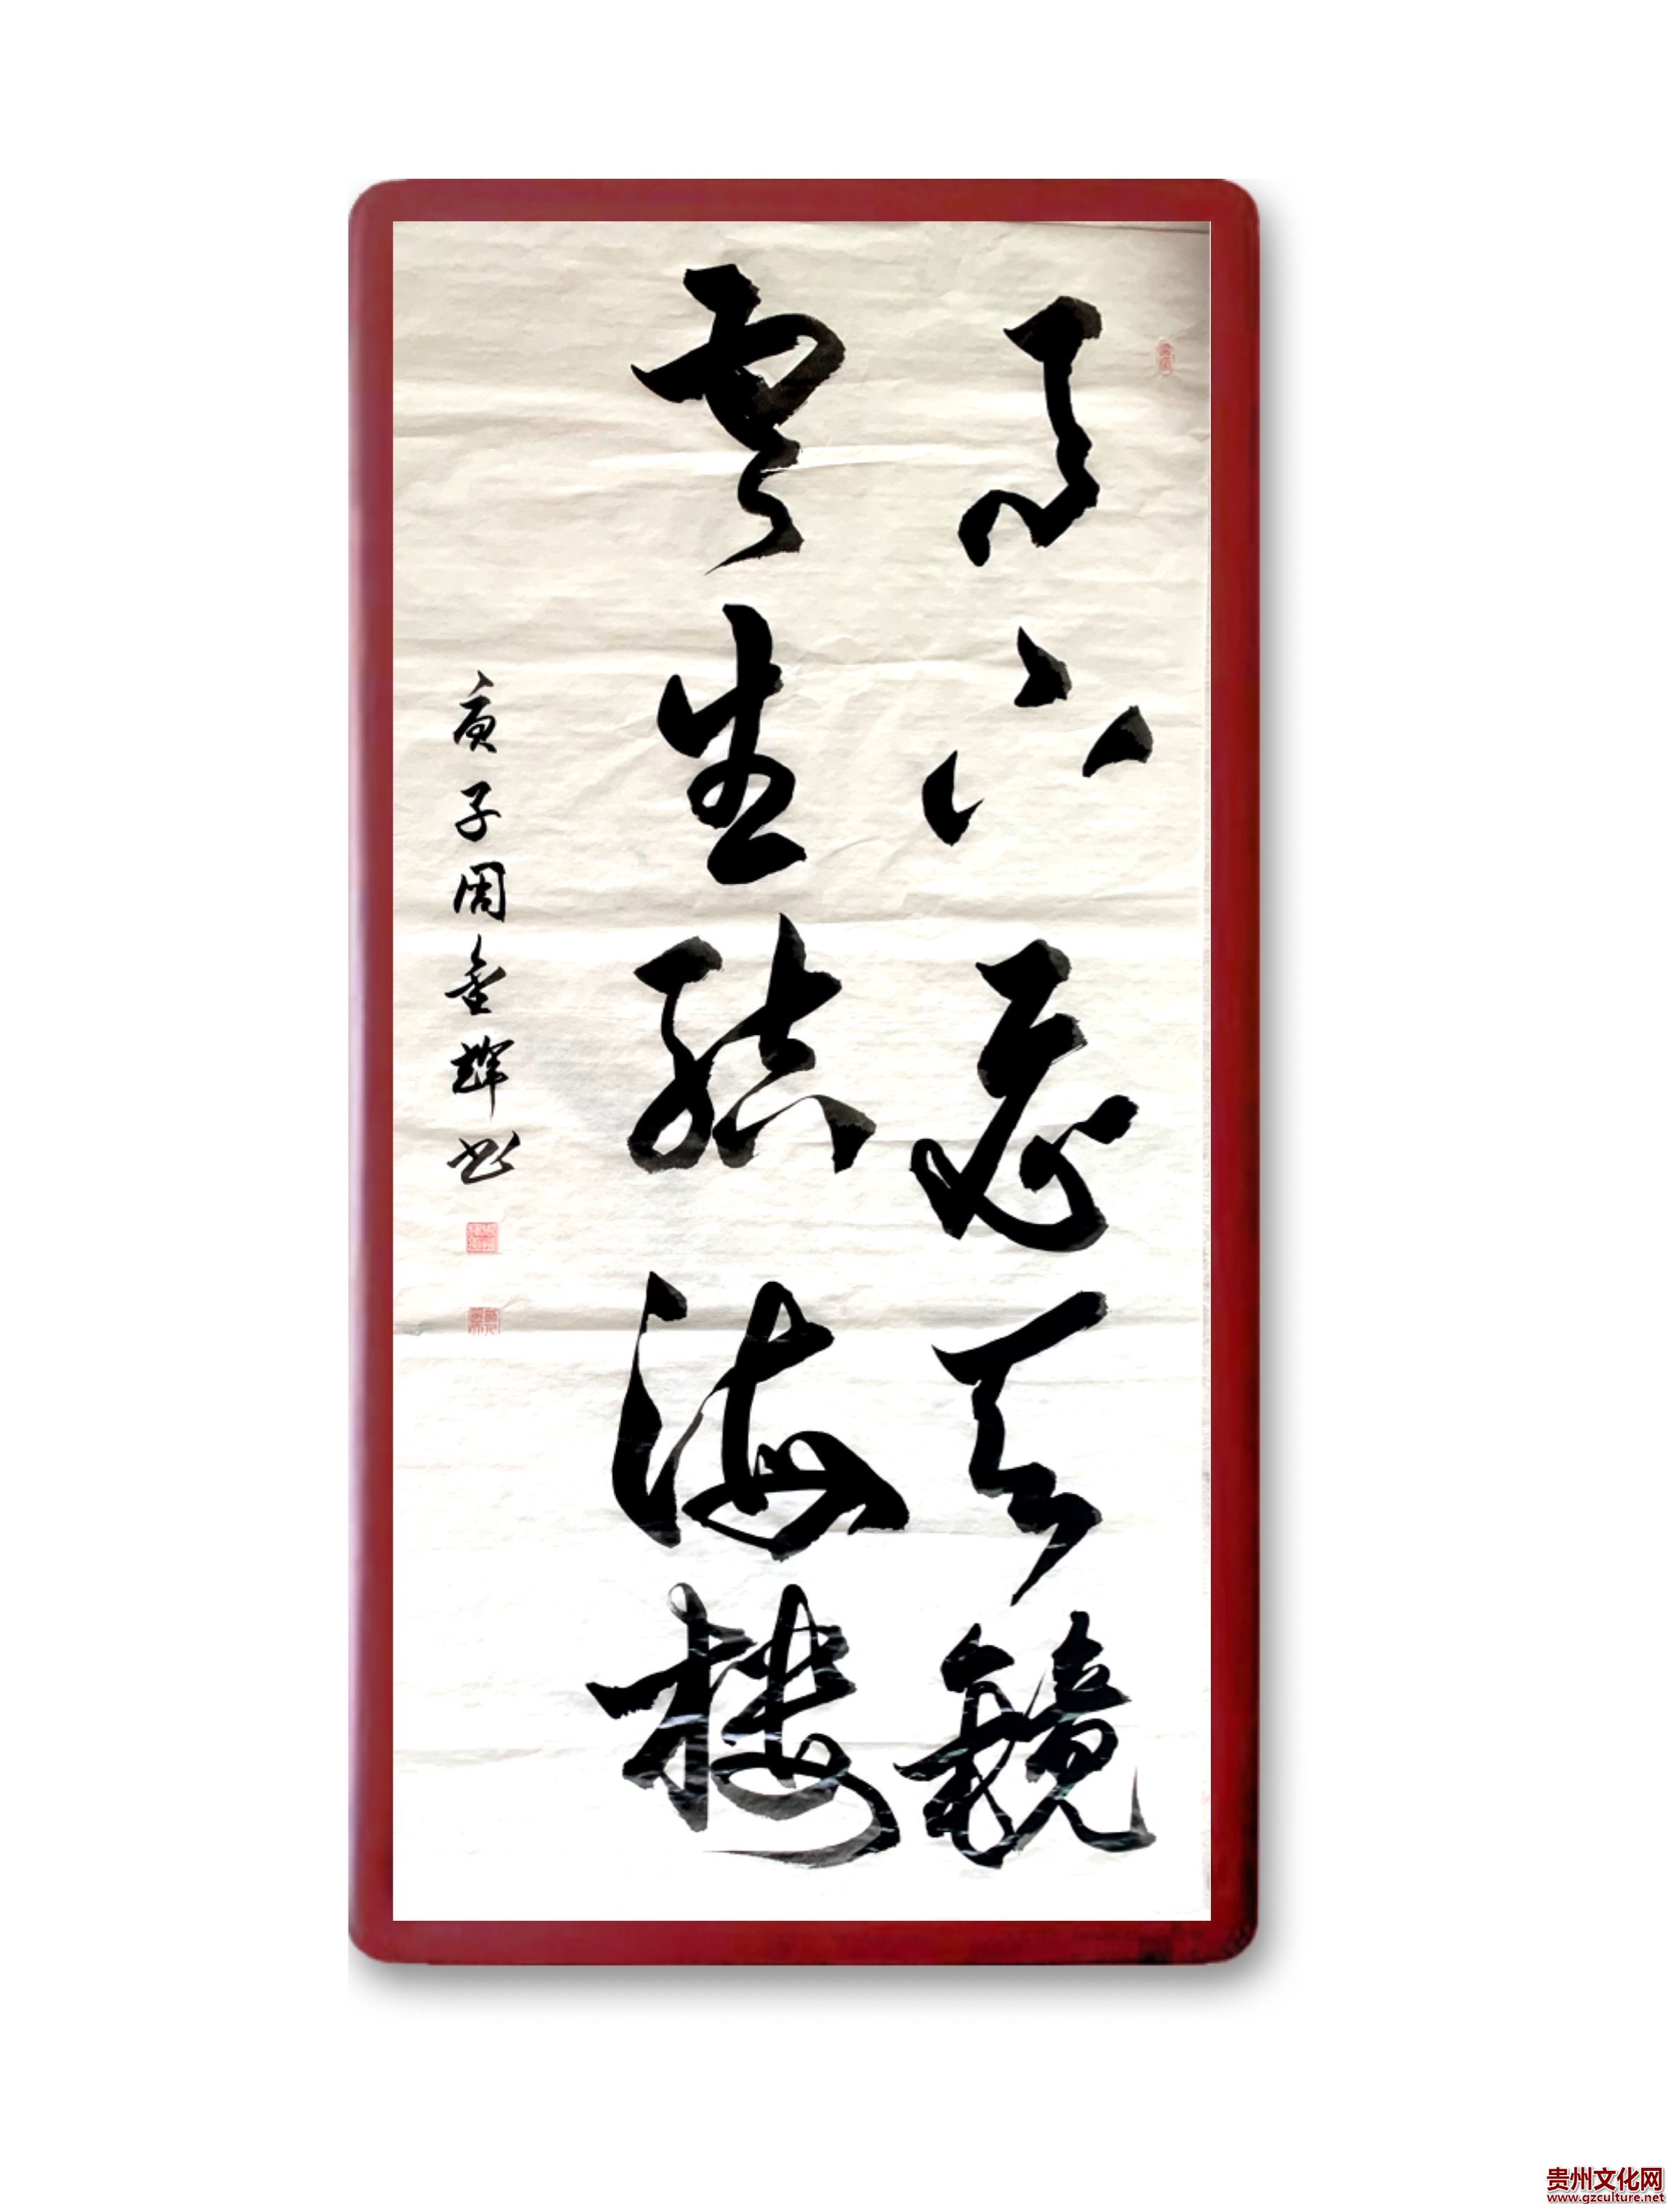 月下飛天鏡
雲生結海樓
庚子周金輝书
贵州文化网
www.gzculture.net